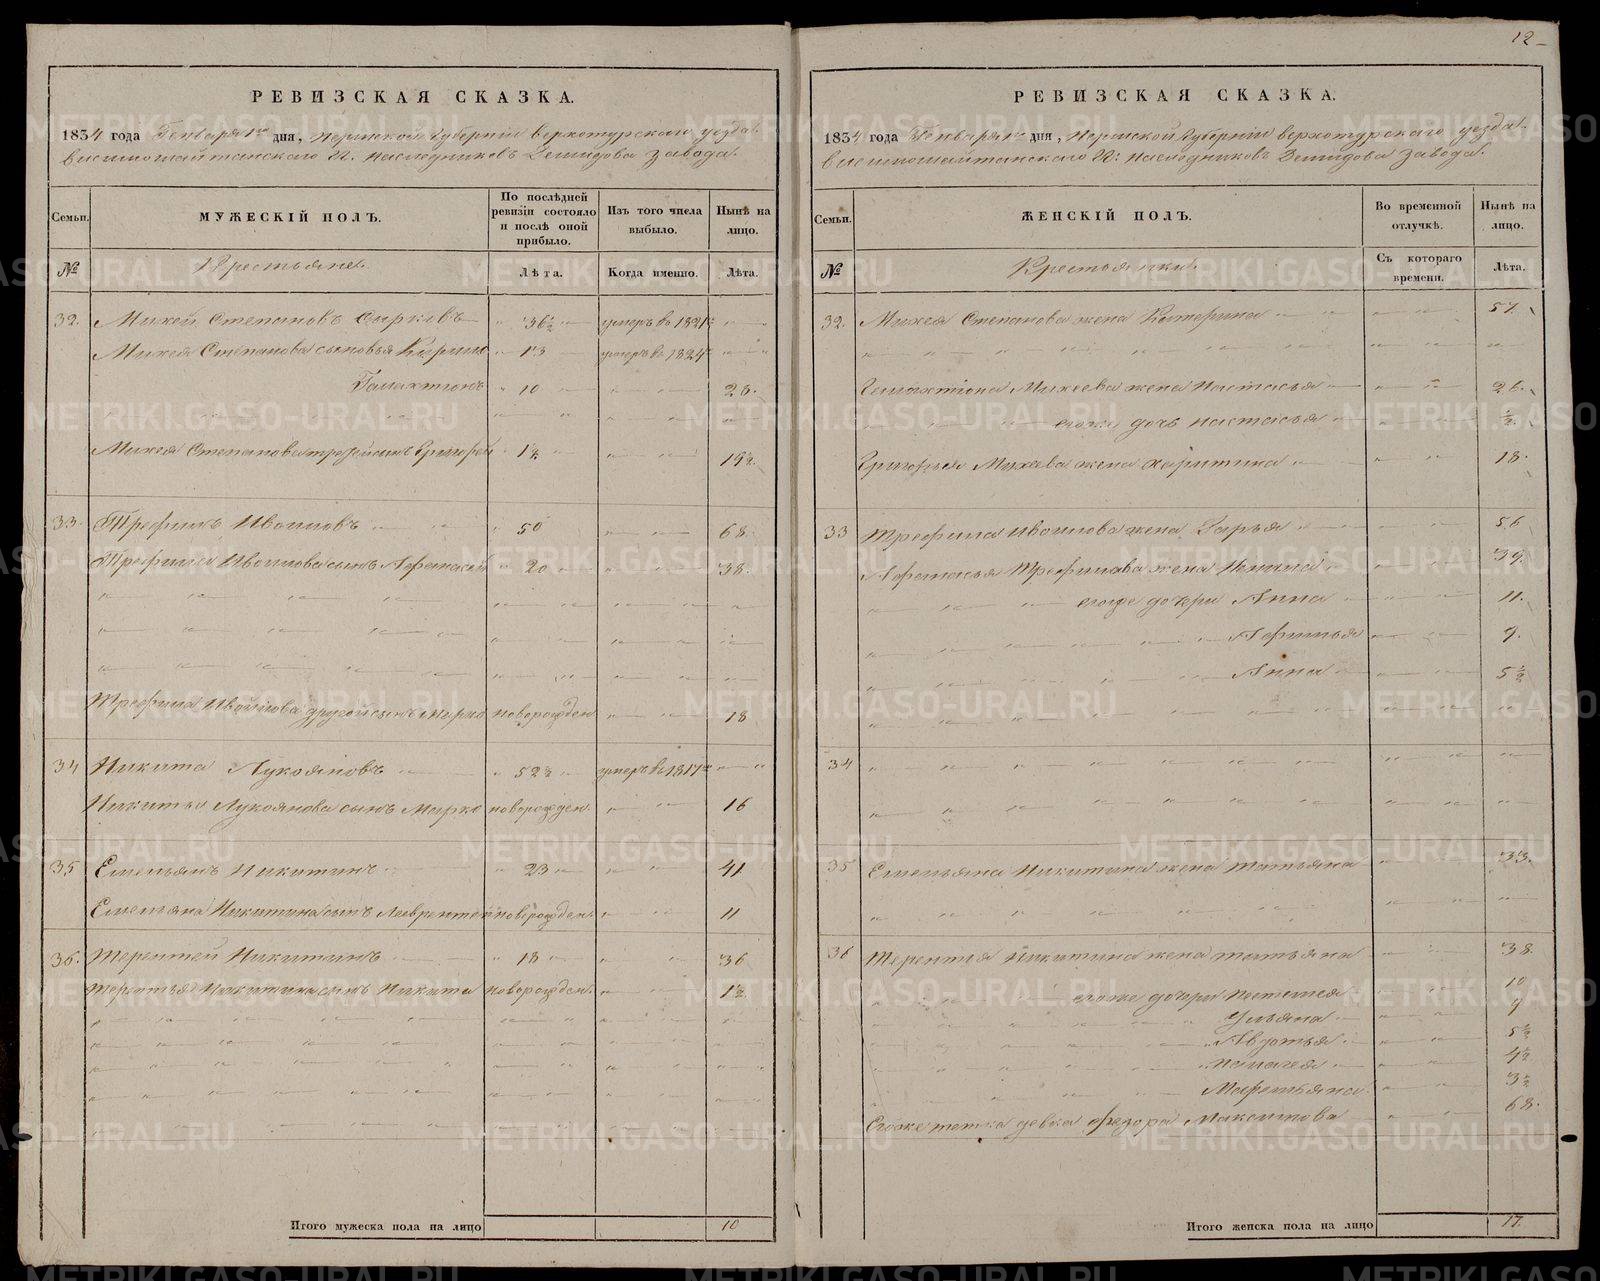 РЕВИЗСКАЯ СКАЗКА.
1834 года Генваря 1го дня, Пермской Губернiи верхотурскаго уезда.
висимошайтанскаго Г.г. наследниковъ Демидова завода.
Семьи.
МУЖЕСКІЙ ПОЛЪ.
По послѣдней ревизіи состояло и послѣ оной прибыло.
Изъ того числа выбыло.
Нынѣ на лицо.
№
Крестьяне.
Лѣта.
Когда именно.
Лѣта.
32. Михей Степановъ 36½ умеръ въ 1821г.
Михея Степанова сыновья 13 умеръ въ 1824г.
Галактионъ 10 28.
Михея Степанова третiй сынъ Григорей 1½ 19½.
33. Трефилъ Ивойловъ 50 68
Трефила Ивойлова сынъ Афанасей 20 38.
Трефила Ивойлова другой сынъ новорожден. 18
34 Никита Лукояновъ 52½ умеръ въ 1817г.
Никиты Лукоянова сынъ Марко новорожден. 16
35 Емельянъ Никитинъ 23 41
Емельяна Никитина сынъ Лаврентей новорожден. 11
36. Терентей Никитинъ 18 36
Терентья Никитина сынъ Никита новорожден. 1½.
Итого мужеска пола на лицо 10
12
РЕВИЗСКАЯ СКАЗКА.
1834 года Генваря 1го дня, Пермской Губернiи верхотурскаго уезда.
висимошайтанскаго Г.г. наследниковъ Демидова завода.
Семьи.
ЖЕНСКІЙ ПОЛЪ.
Во временной отлучкѣ.
Нынѣ на лицо.
№
Крестьянки.
Съ котораго времени.
Лѣта.
32. Михея Степанова жена Катерина 57.
Галактiона Михеева жена Настасья 26.
егоже дочь Настасья ½.
Григорья Михеева жена Харитина 18.
33 Трефила Ивойлова жена Дарья 56
Афанасья Трефилова жена 39.
егоже дочери Анна 11.
Афимья 9.
Анна 5½
34
35 Емельяна Никитина жена Татьяна 33.
36 Терентья Никитина жена татьяна 38.
егоже дочери 10
Ульяна 9
Авдотья 5½
Пелагея 4½
3½
Егоже тетка девка Федора Максимова 68.
Итого женска пола на лицо 17.
METRIKI.GASO-URAL.RU